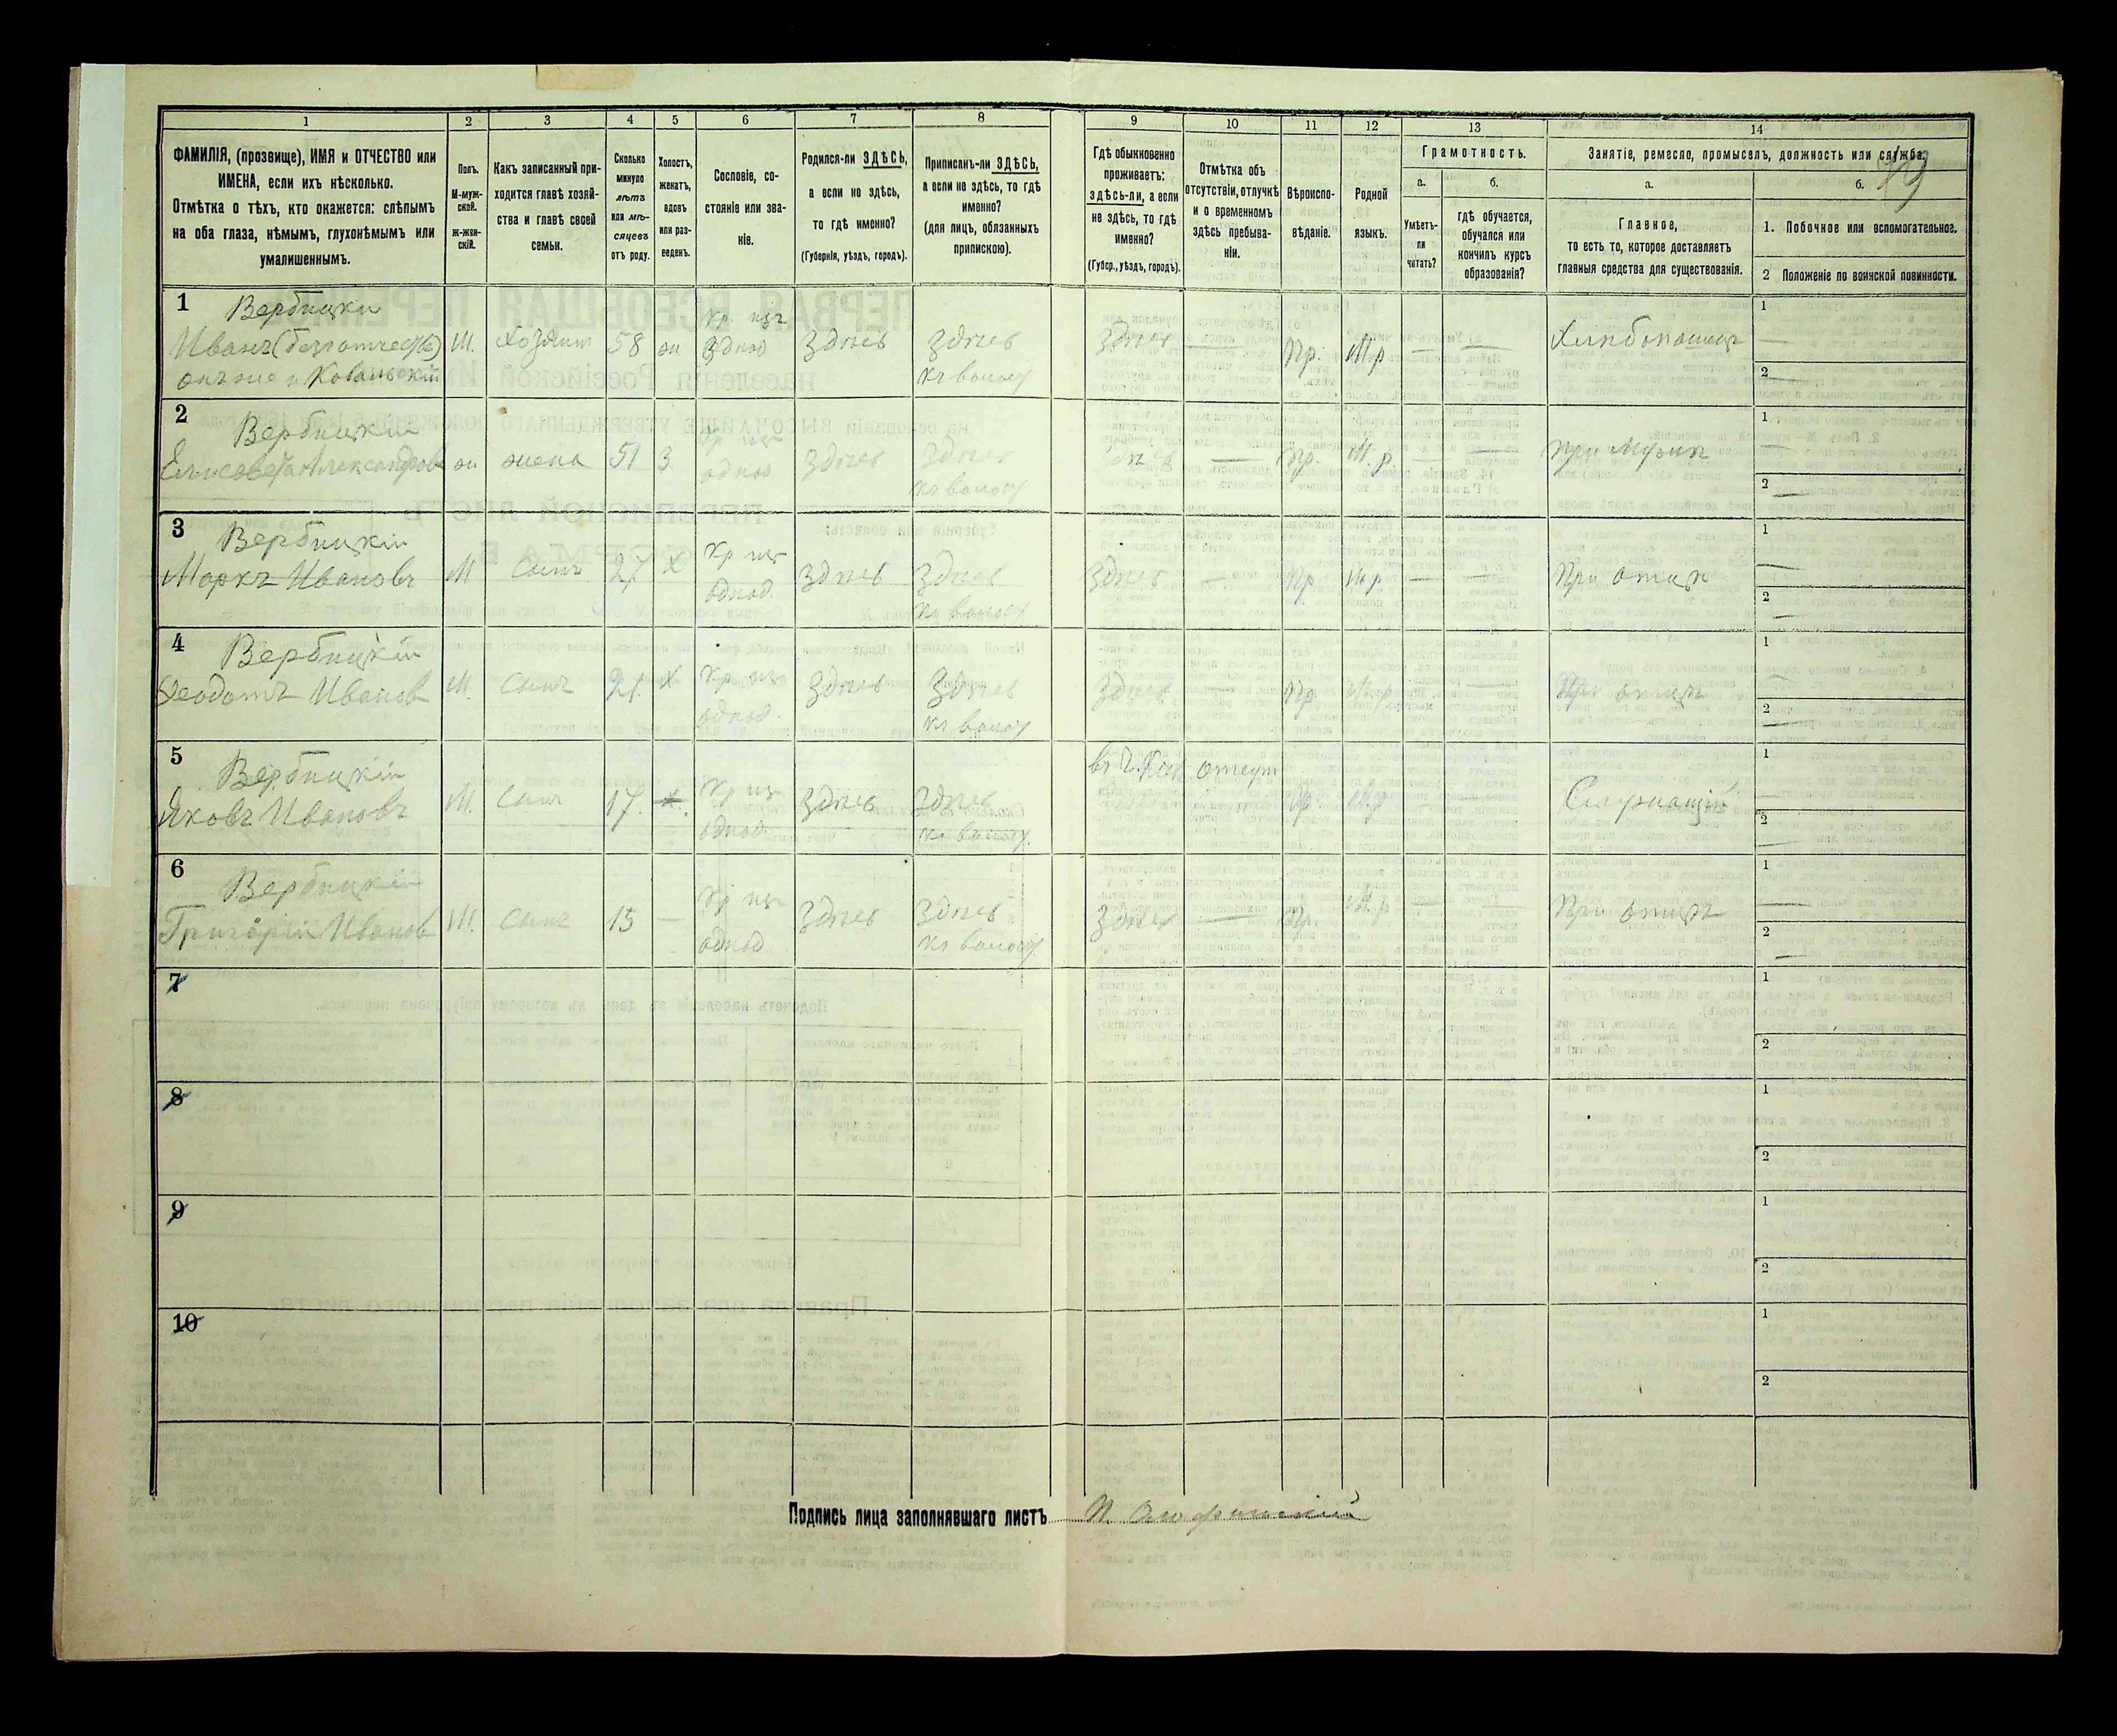 1 2 3 4 5 6 7 8 9 10 11 12 13 14
ФАМИЛІЯ, (прозвище), ИМЯ и ОТЧЕСТВО или
ИМЕНА, если ихъ нѣсколько.
Отмѣтка о тѣхъ, кто окажется: слѣпымъ
на оба глаза, нѣмымъ, глухонѣмымъ или
умалишеннымъ.
Полъ.
М-муж-
ской.
ж-жен-
скій.
Какъ записанный при-
ходится главѣ хозяй-
ства и главѣ своей
семьи.
Сколько
минуло
лѣтъ
или мѣ-
сяцевъ
отъ роду.
Холостъ,
женатъ,
вдовъ
или раз-
веденъ.
Сословіе, со-
стояніе или зва-
ніе.
Родился-ли ЗДѢСЬ,
а если не здѣсь,
то гдѣ именно?
(Губернія, уѣздъ, городъ).
Приписанъ-ли ЗДѢСЬ,
а если не здѣсь, то гдѣ
именно?
(для лицъ, обязанныхъ
припискою).
Гдѣ обыкновенно
проживаетъ:
здѣсь-ли, а если
не здѣсь, то гдѣ
именно?
(Губер., уѣздъ, городъ).
Отмѣтка объ
отсутствіи, отлучкѣ
и о временномъ
здѣсь пребыва-
ніи.
Вѣроиспо-
вѣданіе.
Родной
языкъ.
Грамотность.
а.
Умѣетъ-
ли
читать?
б.
гдѣ обучается,
обучался или
кончилъ курсъ
образованія?
Занятіе, ремесло, промыселъ, должность или служба.
а.
Главное,
то есть то, которое доставляетъ
главныя средства для существованія.
б.
1. Побочное или вспомогательное.
2 Положеніе по воинской повинности.
1 Вербицки 1
Иванъ (безотчеств) М. Хозяин 58 ж Здѣсь Здѣсь Здѣсь — Пр. М.р — — Хлѣбопашец —
онъ же и Ковальскій 2
2 Вербицкии 1
Елисавета Александрова ж жена 51 З Здѣсь Здѣсь Здѣсь — Пр. М.р — — При Мужѣ —
2 —
3 Вербицкіи 1
Маркъ Ивановъ М Сынъ 27 Х Здѣсь Здѣсь Здѣсь — Пр М.р. — — При отцѣ —
2 —
4 Вербицкіи 1
Ѳеодотъ Иванов М. Сынъ 21. Х Здѣсь Здѣсь Здѣсь — Пр М.р — — При отцѣ —
2 —
5 Вербицкіи отсут 1
Яковъ Ивановъ М. Сынъ 17. Здѣсь Здѣсь Пр. М.р — — Служащій —
2
6 Вербицкіи 1
Григоріи Иванов М. Сынъ 15 — Здѣсь Здѣсь Здѣсь — Пр. М.р — — При отцѣ —
2 —
7 1
2
8 1
2
9 1
2
10 1
2
Подпись лица заполнявшаго листъ